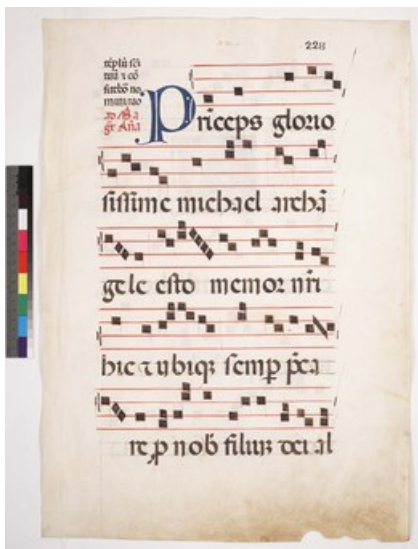 228
tēplū sēi
tuū ⁊ cō
fitebō no
mini tuo
ad Mag
Priceps glorio
sissime michael archā
gele esto memor nr̄i
hic ⁊ ubiqꝫ semꝑ p̄ca
re ꝓ nob filiuꝫ dei al